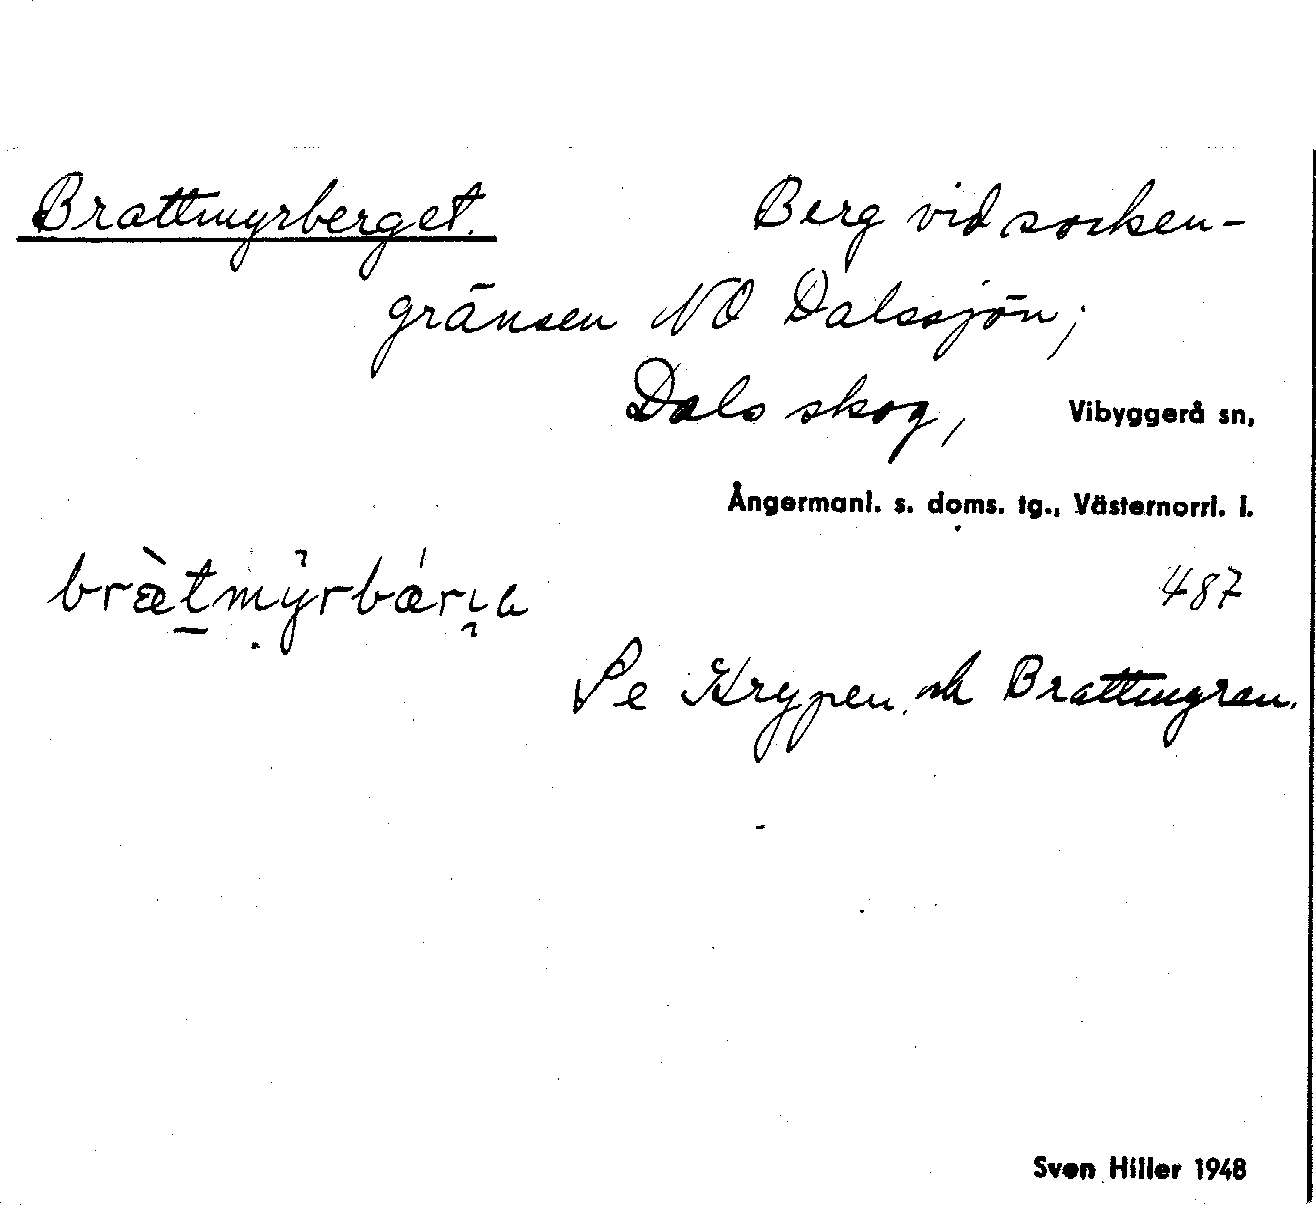 Brattmyrberget. Berg vid socken-
gränsen NO Dalssjön;
Dals skog, Vibyggerå sn,
Ångermanl. s. doms. tg., Västernorrl. l.
487
Se Krypen och Brattmyran.
Sven Hiller 1948